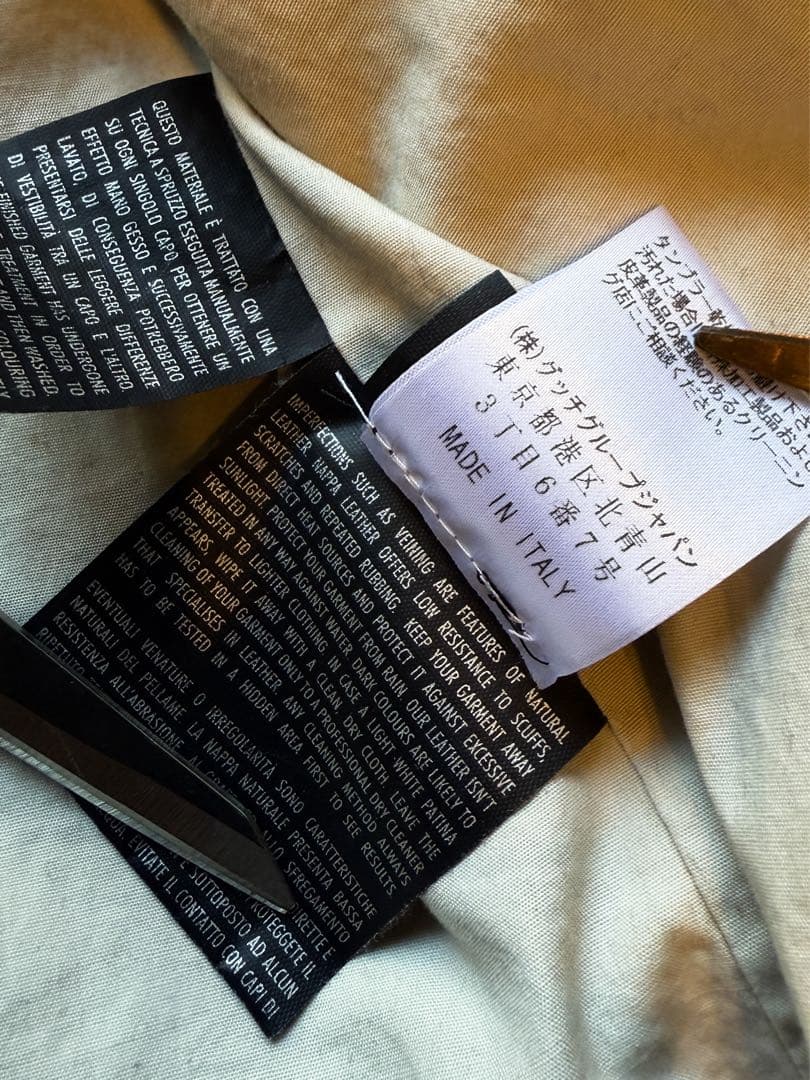 QUESTO MATERIALE È TRATTATO CON UNA
TECNICA A SPRUZZO ESEGUITA MANUALMENTE
SU OGNI SINGOLO CAPO PER OTTENERE UN
EFFETTO MANO GESSO E SUCCESSIVAMENTE
LAVATO, DI CONSEGUENZA POTREBBERO
PRESENTARSI DELLE LEGGERE DIFFERENZE
DI VESTIBILITÀ TRA UN CAPO E L'ALTRO.
FINISHED GARMENT HAS UNDERGONE
TREATMENT IN ORDER TO
AND THEN WASHED.
COLOURING
タンブラー
汚れた場合
皮革製品の経験のあるクリーニン
グ店にご相談ください。
(株)グッチグループジャパン
東京都港区北青山
3丁目6番7号
MADE IN ITALY
IMPERFECTIONS SUCH AS VEINING ARE FEATURES OF NATURAL
LEATHER NAPPA LEATHER OFFERS LOW RESISTANCE TO SCUFFS,
SCRATCHES AND REPEATED RUBBING. KEEP YOUR GARMENT AWAY
FROM DIRECT HEAT SOURCES AND PROTECT IT AGAINST EXCESSIVE
SUNLIGHT. PROTECT YOUR GARMENT FROM RAIN. OUR LEATHER ISN'T
TREATED IN ANY WAY AGAINST WATER. DARK COLOURS ARE LIKELY TO
TRANSFER TO LIGHTER CLOTHING. IN CASE A LIGHT WHITE PATINA
APPEARS, WIPE IT AWAY WITH A CLEAN, DRY CLOTH. LEAVE THE
CLEANING OF YOUR GARMENT ONLY TO A PROFESSIONAL DRY CLEANER
THAT SPECIALISES IN LEATHER. ANY CLEANING METHOD ALWAYS
HAS TO BE TESTED IN A HIDDEN AREA FIRST TO SEE RESULTS.
EVENTUALI VENATURE O IRREGOLARITÀ SONO CARATTERISTICHE
NATURALI DEL PELLAME. LA NAPPA NATURALE PRESENTA BASSA
RESISTENZA ALL'ABRASIONE, AL
SFREGAMENTO
DIRETTE E
PROTEGGETE IL
È SOTTOPOSTO AD ALCUN
EVITATE IL CONTATTO CON CAPI DI